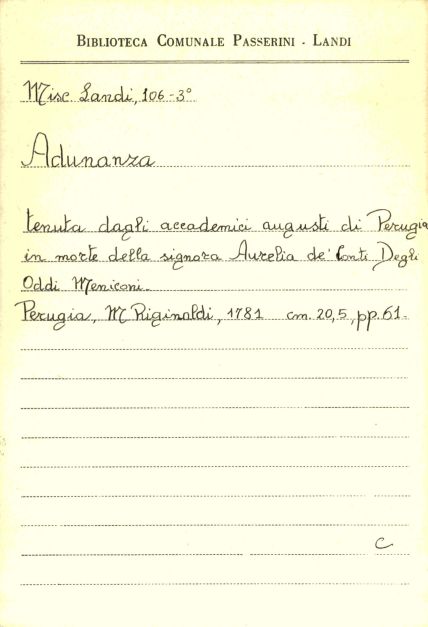 BIBLIOTECA COMUNALE PASSERINI - LANDI
Misc. Landi, 106-3°
Adunanza
tenuta dagli accademici augusti di Perugia
in morte della signora Aurelia de' Conti Degli
Oddi Meniconi.
Perugia, M Riginaldi, 1781 cm. 20,5, pp. 61.
C